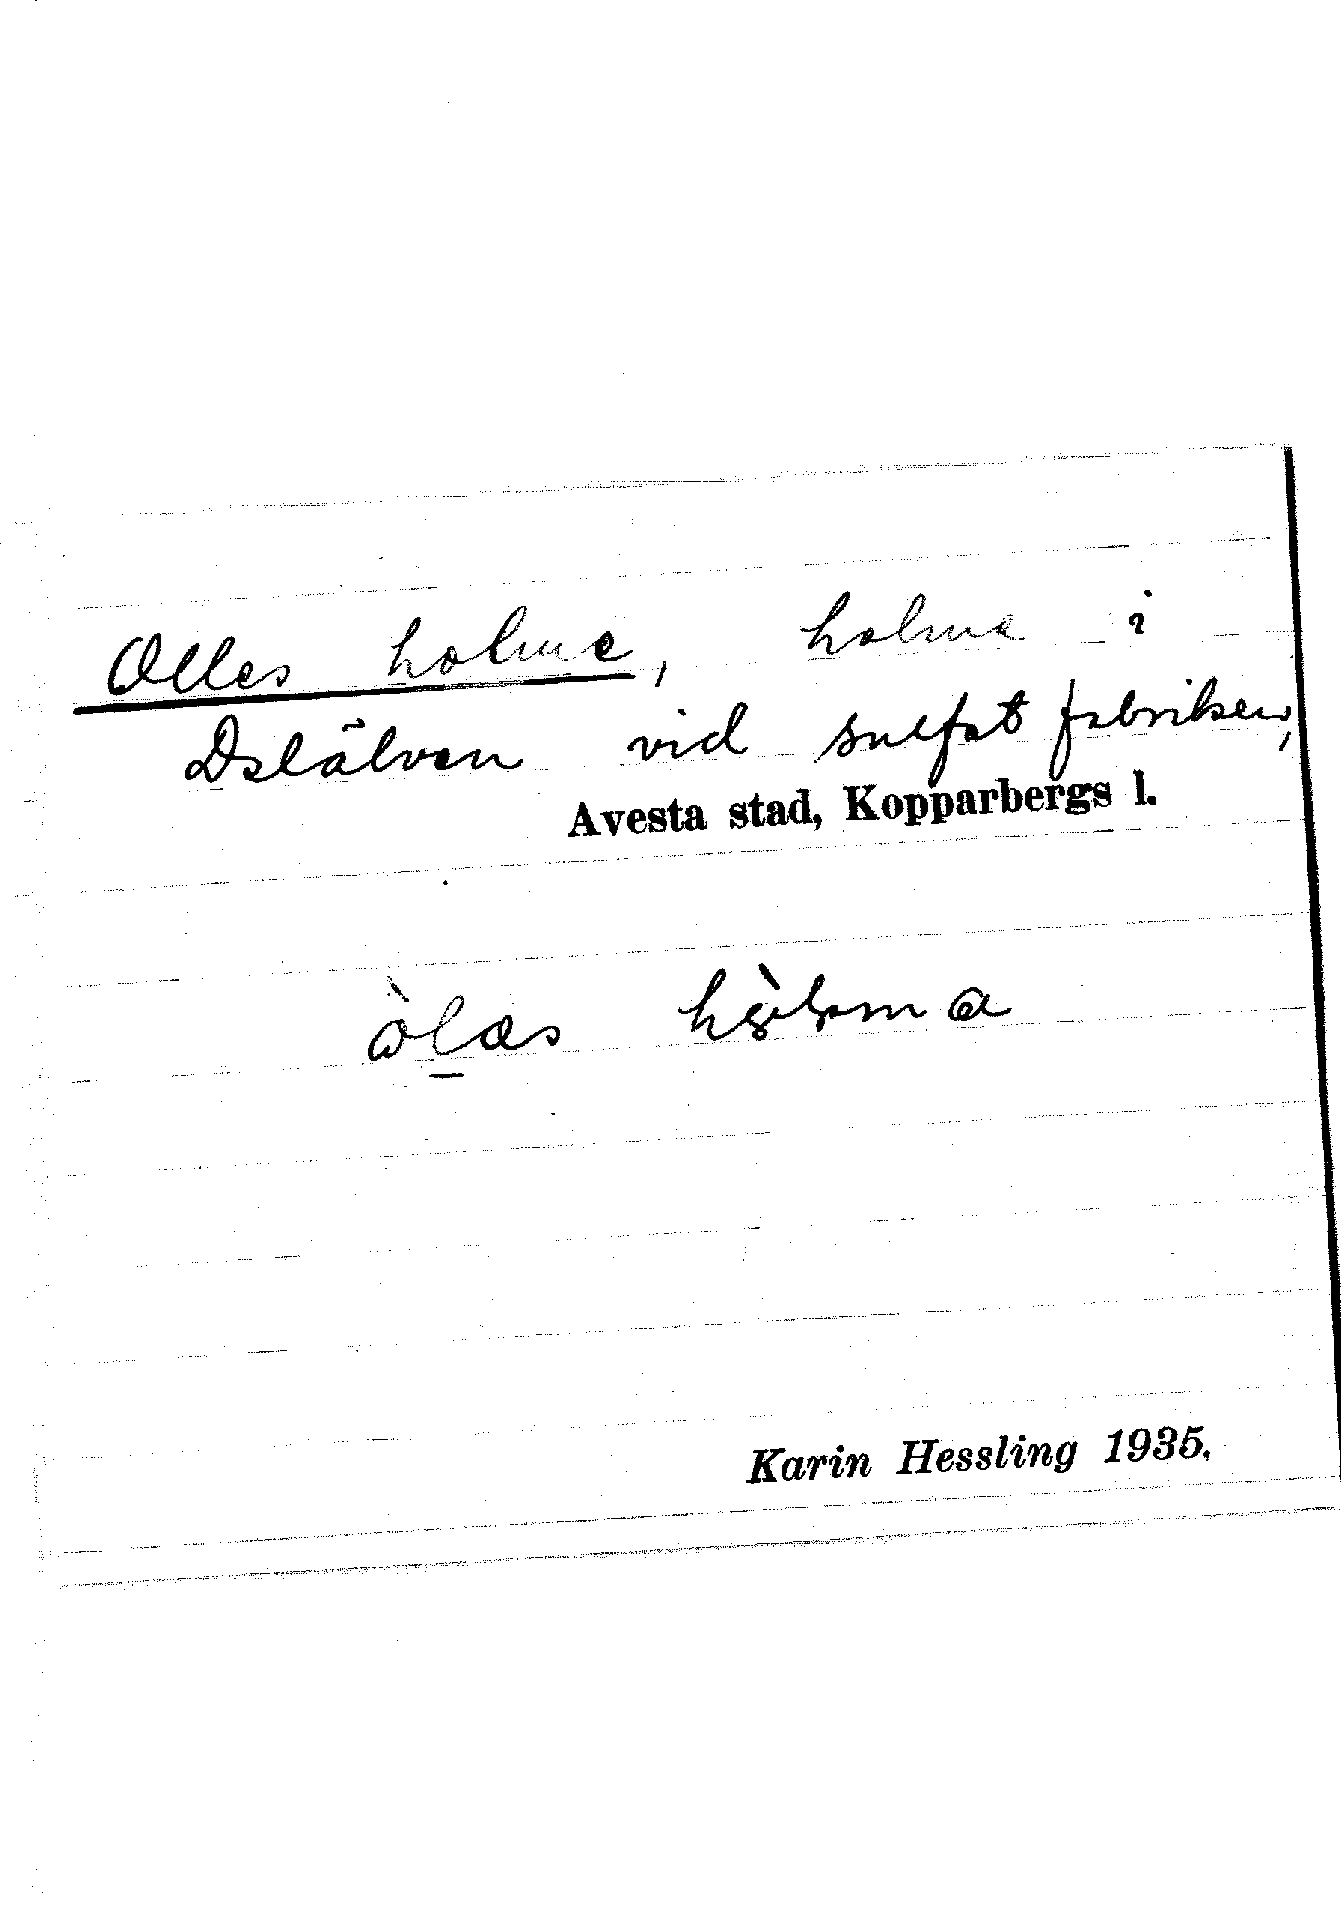 Olles holme, holme i
Dalälven vid sulfatfabriken,
Avesta stad, Kopparbergs l.
Karin Hessling 1935.